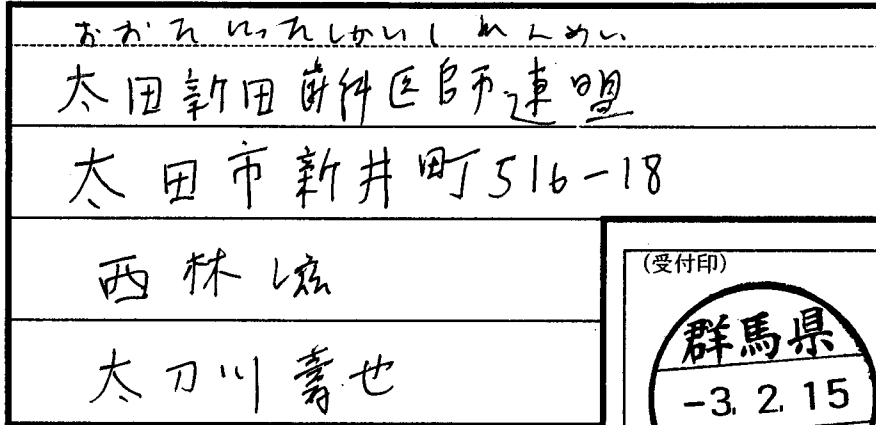 おおたにったしかいしれんめい
太田新田歯科医師連盟
太田市新井町516-18
西林滋
太刀川壽也
(受付印)
群馬県
-3. 2. 15